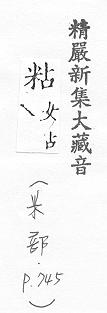 精嚴新集大藏音
粘 女占
(米部.p.745)